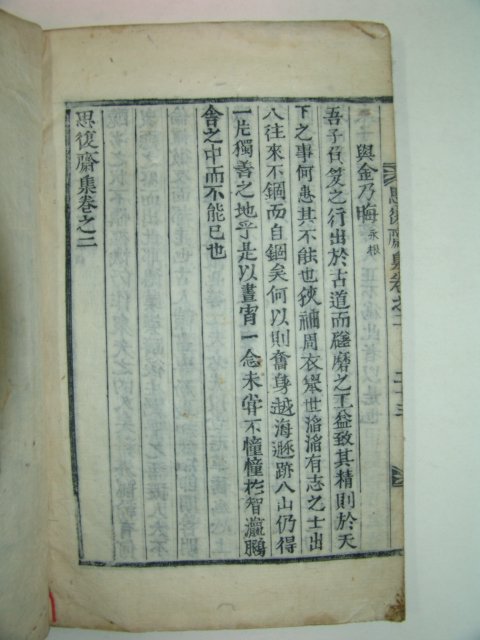 思復齋集卷之二
二十三
與金乃晦永根
吾子負笈之行出於古道而礲磨之工益致其精則於天
下之事何患其不能也狹袖周衣擧世滔滔有志之士出
入往來不錮而自錮矣何以則奮身越海遯跡八山仍得
一片獨善之地乎是以晝宵一念未嘗不憧憧於智瀛鵬
舍之中而不能已也
思復齋集卷之二